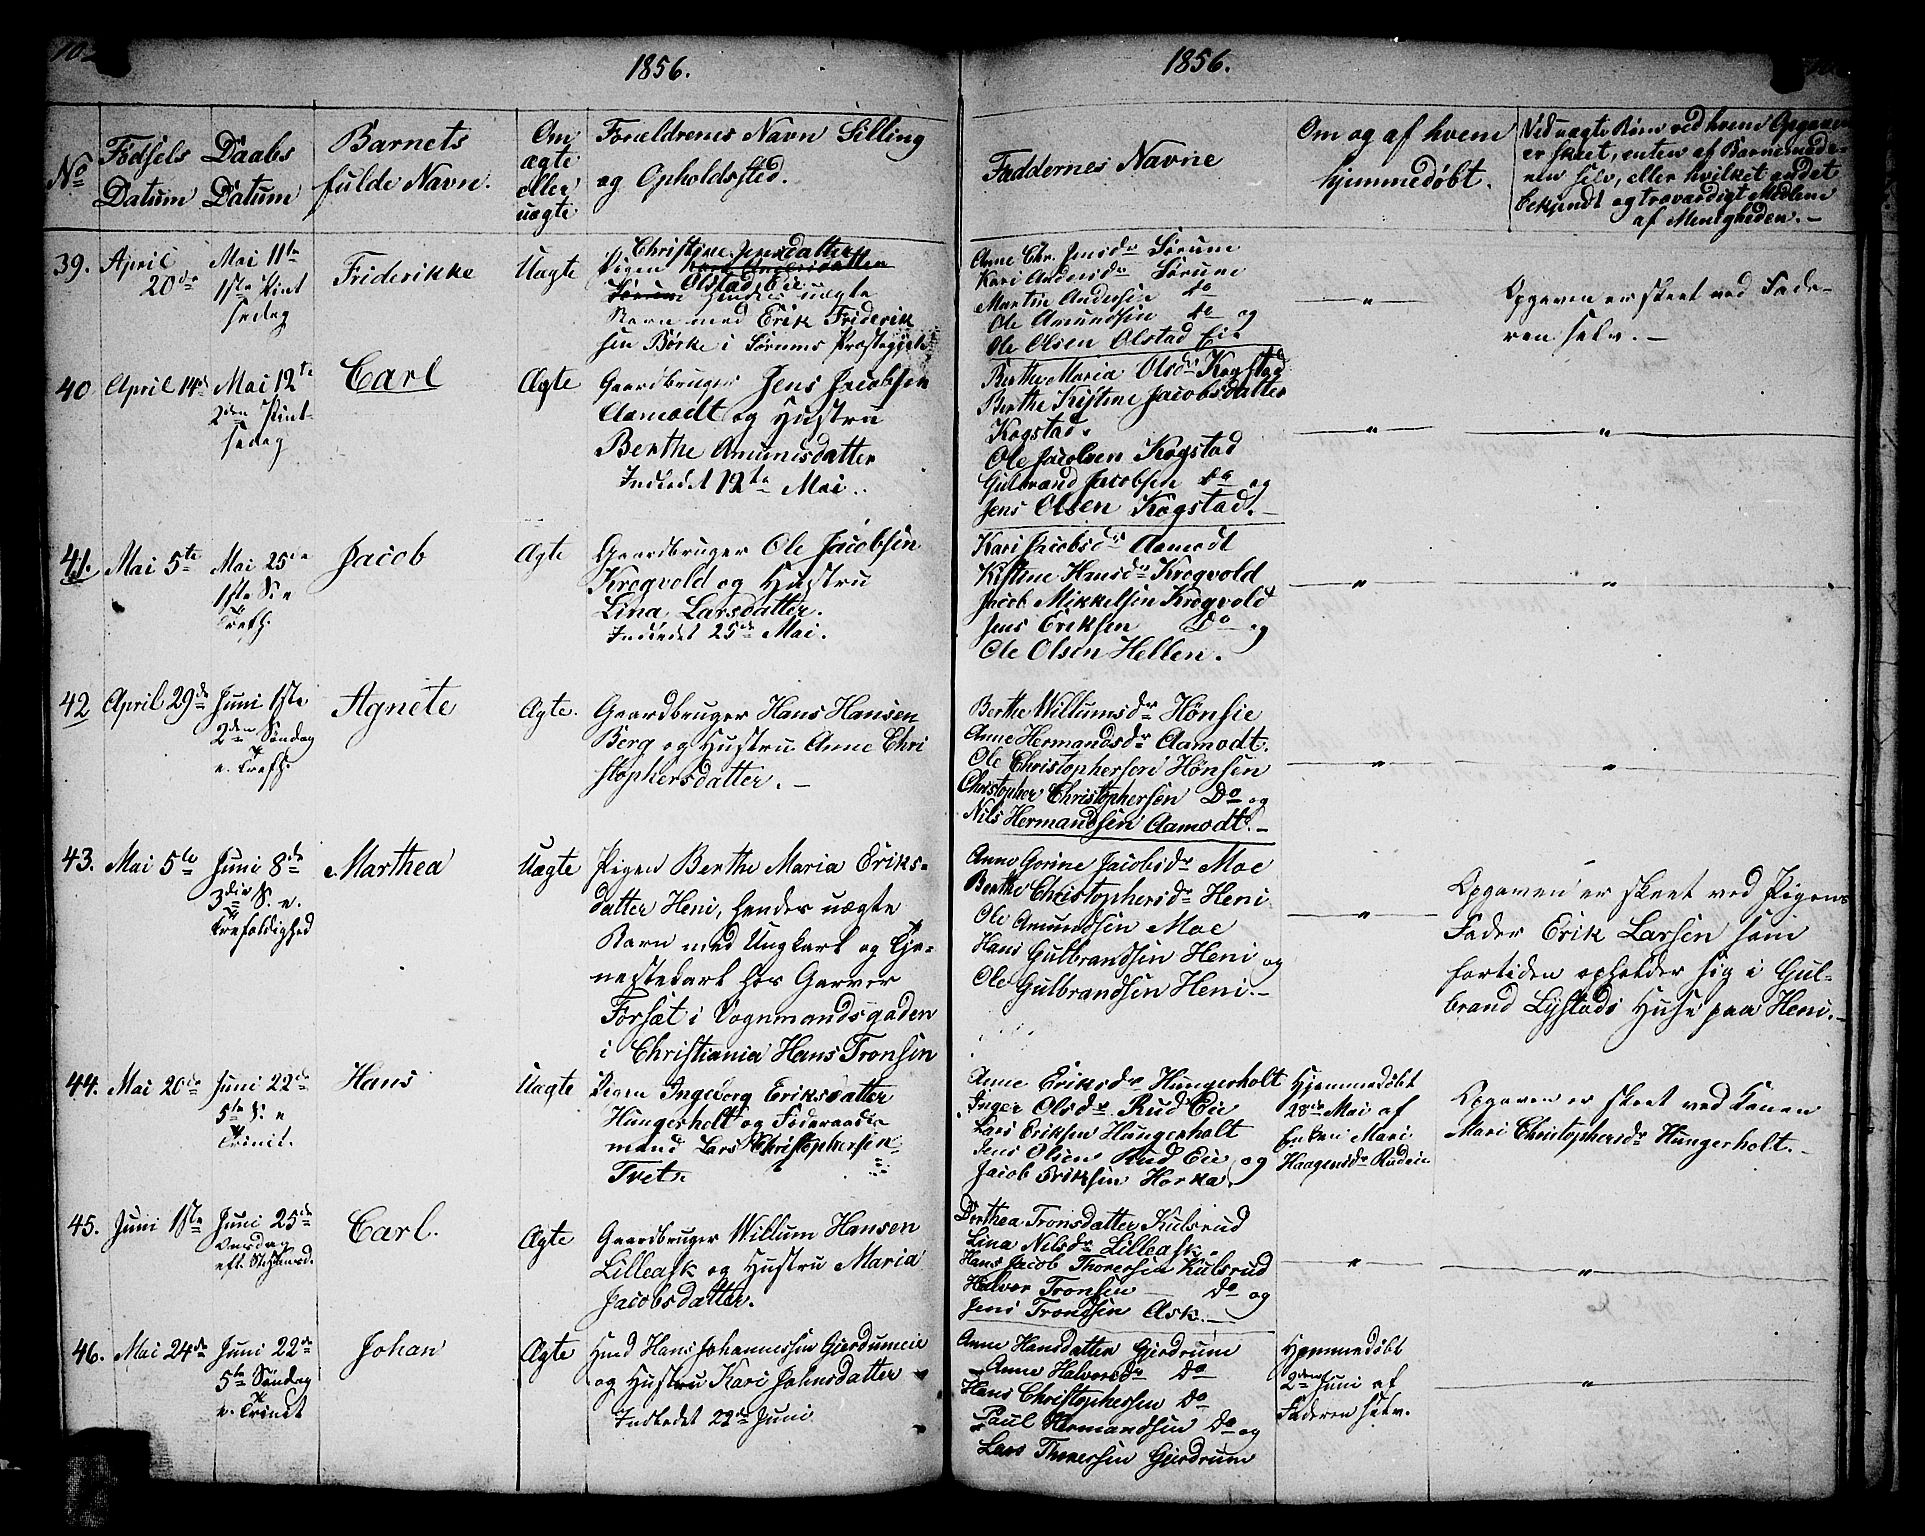 1856.
1856.
No
Fødsels
Datum
Daabs
Datum
Barnets
fulde Navn.
Om
ægte
eller
uægte
Forældrenes Navn Stilling
og Opholdssted.
Faddernes Navne
Om og af hvem
hjemmedøbt.
Ved uægte Børn ved hvem Opgaven
er skeet, enten af Barnemode-
ren selv, eller hvilket andet
bekjendt og troværdigt Medlem
af Menigheden. –
39.
April
20de
Mai 11te
1ste Pint
sedag
Friderikke
Uægte
Christine Jensdatter
Pigen
Olstad Eie
Hendes uægte
Barn med Erik Friderik
sen Børke i Sørums Præstegjeld
Anne Chr. Jensdr Sørum
Kari Andersdr Sørum
Martin Andersen do
Ole Amundsen do og
Ole Olsen Olstad Eie
"
Opgaven er skeet ved Fade-
ren selv. –
40
April 14de
Mai 12te
2den Pint-
sedag
Carl
Ægte
Gaardbruger Jens Jacobsen
Aamodt og Hustru
Berthe Amunisdatter
Indledet 12te Mai.
Berthe Maria Olsdr Kogstad
Berthe Kistine Jacobsdatter
Kogstad.
Ole Jacobsen Kogstad
Gulbrand Jacobsen Do og
Jens Olsen Kogstad. –
"
"
41.
Mai 5te
Mai 25de
1ste S. e
Trefh.
Jacob
Ægte
Gaardbruger Ole Jacobsen
Krogvold og Hustru
Lina Larsdatter.
Indledet 25de Mai.
Kari Jacobsdr Aamodt
Kistine Hansdr Krogvold
Jacob Mikkelsen Krogvold
Jens Eriksen Do og
Ole Olsen Hellen.
"
"
42
April 29de
Juni 1ste
2den Søndag
e. Trefh.
Agnete
Ægte.
Gaardbruger Hans Hansen
Berg og Hustru Anne Chri
stophersdatter. –
Berthe Willumsdr Hønsie
Anne Hermandsdr Aamodt.
Ole Christophersen Hønsen
Christopher Christophersen Do og
Nils Hermandsen Aamodt. –
"
"
43.
Mai 5te
Juni 8de
3die S. e.
Trefoldighed
Marthea
Uægte
Pigen Berthe Maria Eriks-
datter Heni, hendes uægte
Barn med Ungkarl og Tje-
nestekarl hos Garver
Forsæt i Vognmandsgaden
i Christiania Hans Tronsen
Anne Gorine Jacobsdr Moe
Berthe Christophersdr Heni
Ole Amundsen Moe
Hans Gulbrandsen Heni og
Ole Gulbrandsen Heni. –
"
Opgaven er skeet ved Pigens
Fader Erik Larsen som
fortiden opholder sig i Gul-
brand Lystads Huse paa Heni. –
44.
Mai 20de
Juni 22de
5te S. e
Trinit.
Hans
Uægte
Pigen Ingeborg Eriksdatter
Hungerholt og Føderaads-
mand Lars Christophersen
Tveter
Anne Eriksdr Hungerholt
Inger Olsdr Rud Eie
Lars Eriksen Hungerholt
Jens Olsen Rud Eie og
Jacob Eriksen Horka.
Hjemmedøbt
28de Mai af
Enken Mari
Haagensdr Rudeie
Opgaven er skeet ved Konen
Mari Christophersdr Hungerholt. –
45.
Juni 1ste
Juni 25de
Onsdag
Carl.
Ægte
Gaardbruger Willum Hansen
Lilleask og Hustru Maria
Jacobsdatter.
Berthea Tronsdatter Kulsrud
Lina Nilsdr Lilleask.
Hans Jacob Thoresen Kulsrud
Halvor Tronsen Do og
Jens Trondsen Ask. –
"
"
46.
Mai 24de
Juni 22de
5te Søndag
e. Trinit
Johan
Ægte
Husd Hans Johannessen Gjerdrumeie
og Hustru Kari Johnsdatter
Indledet 22de Juni
Anne Hansdatter Gjerdrum
Anne Halvorsdr Do
Hans Christophersen Do
Paul Hermandsen Do og
Lars Thoressen Gjerdrum
Hjemmedøbt
2den Juni af
Faderen selv.
"